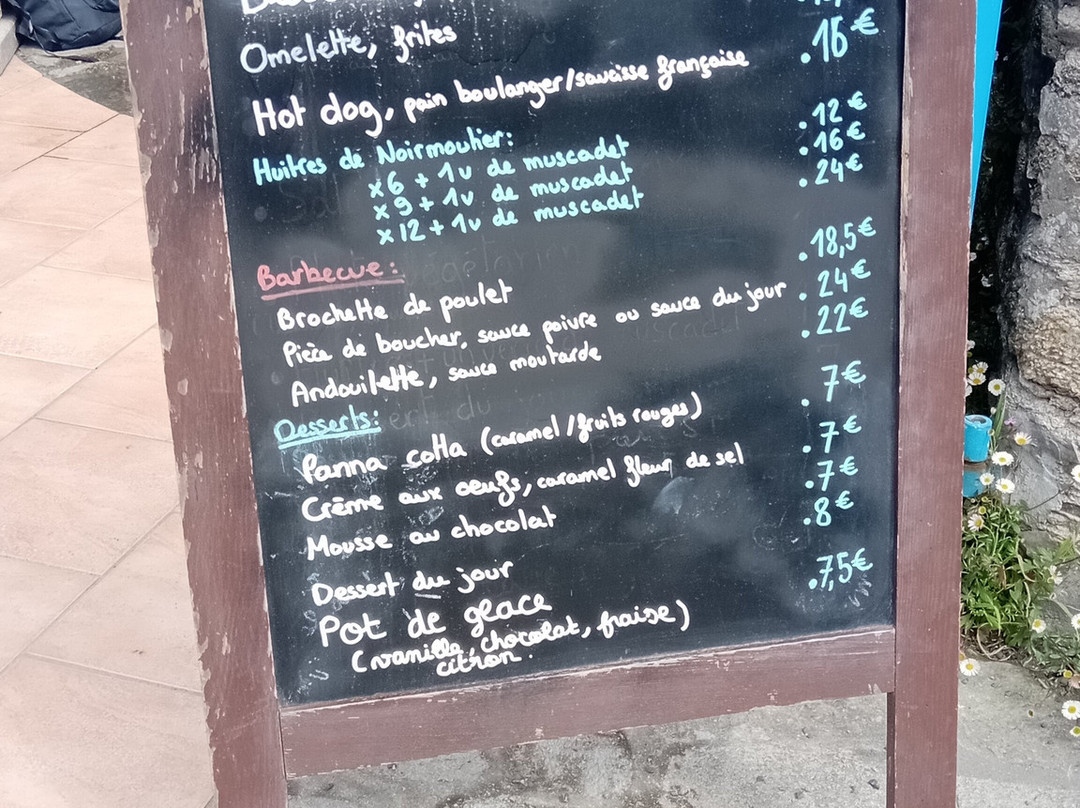 Omelette, frites
Hot dog, pain boulanger/saucisse française .16€
Huîtres de Noirmoutier:
x6 + 1v de muscadet .12€
x9 + 1v de muscadet .16€
x12 + 1v de muscadet .24€
Barbecue:
Brochette de poulet .18,5€
Pièce de boucher, sauce poivre ou sauce du jour .24€
Andouillette, sauce moutarde .22€
Desserts:
Panna cotta (caramel/fruits rouges) .7€
Crème aux oeufs, caramel fleur de sel .7€
Mousse au chocolat .7€
Dessert du jour .8€
Pot de glace .7,5€
(vanille, chocolat, fraise)
citron.